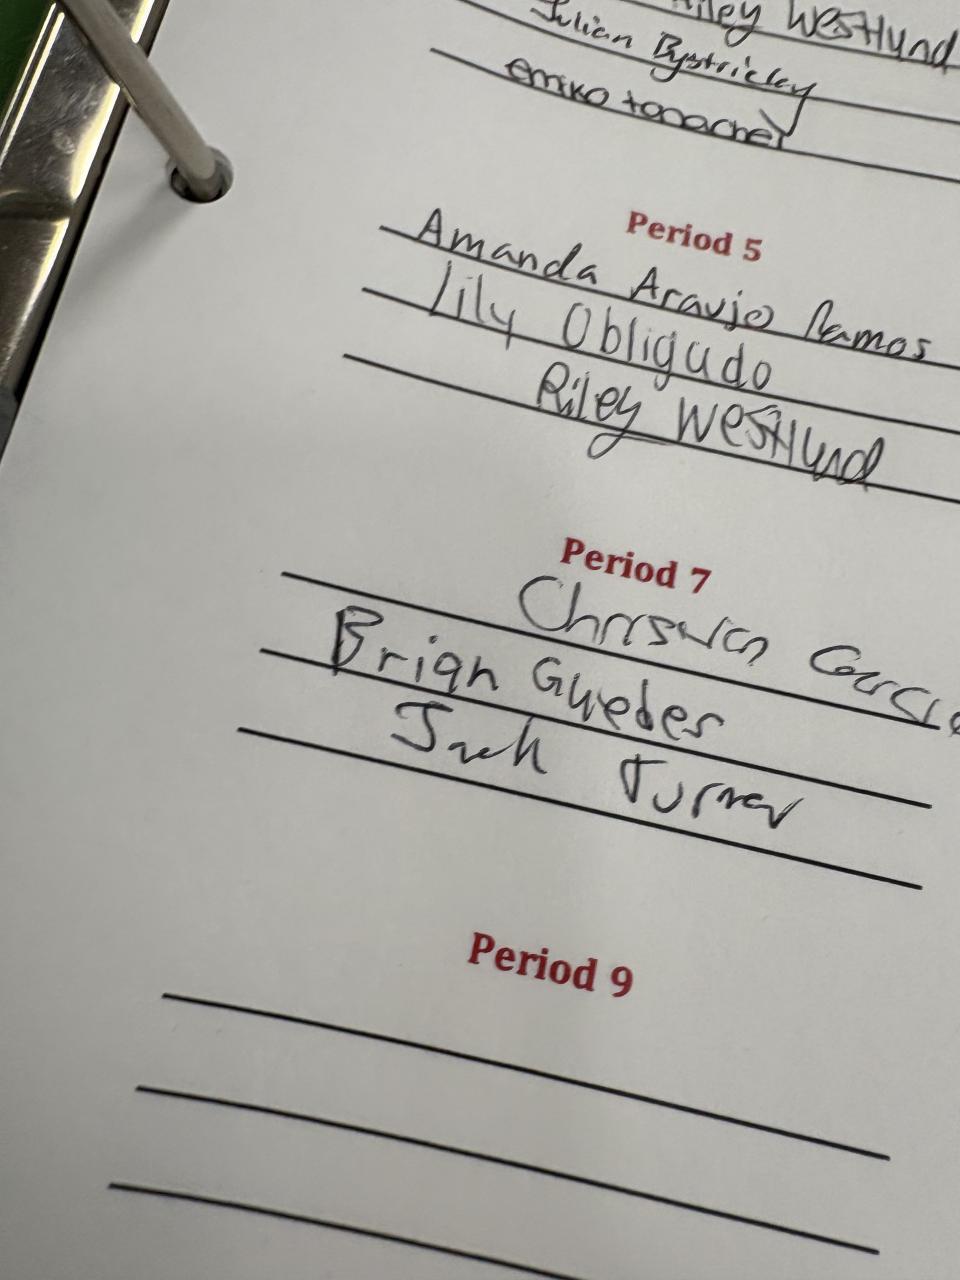 Riley Westlund
Julian Bystricky
emiko
Period 5
Amanda Araujo Ramos
Lily Obligado
Riley Westlund
Period 7
Brian Guedes
Jack Turner
Period 9